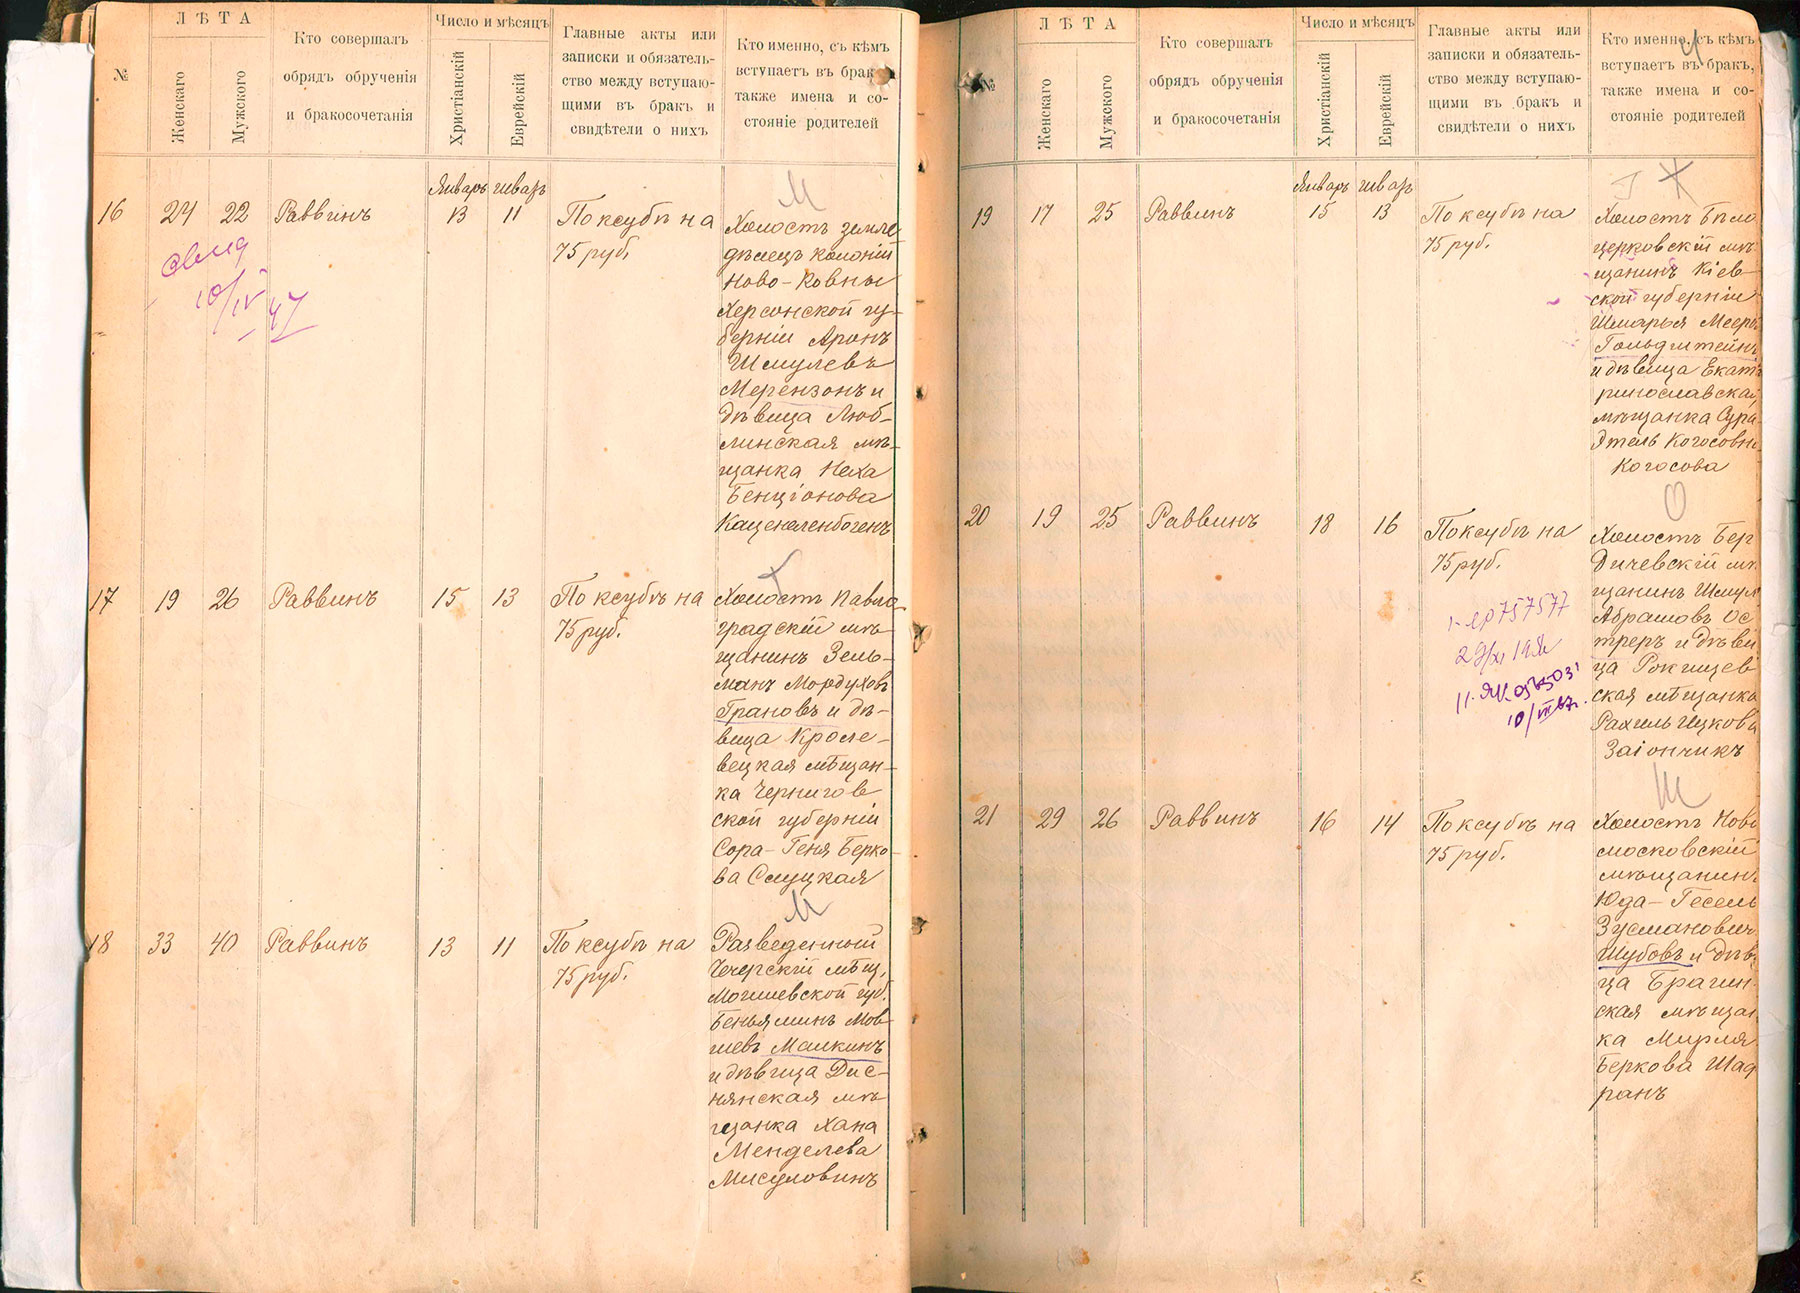 №
ЛѢТА
Женскаго
Мужского
Кто совершалъ
обрядъ обрученія
и бракосочетанія
Число и мѣсяцъ
Христіанскій
Еврейскій
Главные акты или
записки и обязатель-
ство между вступаю-
щими въ бракъ и
свидѣтели о нихъ
Кто именно, съ кѣмъ
вступаетъ въ бракъ
также имена и со-
стояніе родителей
Январь шватъ
М
16 24 22 Раввинъ 13 11 По ксубѣ на
75 руб.
Холостъ земле
дѣлецъ колоніи
Ново-Ковны
Херсонской гу-
берніи Аронъ
Шмулевъ
Мерензонъ и
дѣвица Люб-
линская мѣ-
щанка Неха
Бенціонова
Каценеленбогенъ
свид
10/IV 47
Г
17 19 26 Раввинъ 15 13 По ксубѣ на
75 руб.
Холостъ Павло-
градскій мѣ-
щанинъ Зель-
манъ Мордуховъ
Грановъ и дѣ-
вица Кроле-
вецкая мѣщан-
ка Чернигов
ской губерніи
Сора-Геня Берко-
ва Слуцкая
М
18 33 40 Раввинъ 13 11 По ксубѣ на
75 руб.
Разведенный
Чечерскій мѣщ.
Могилевской губ.
Беньяминъ Мов-
шевъ Малкинъ
и дѣвица Дис-
нянская мѣ-
щанка Хана
Менделева
Мисуловинъ
№
ЛѢТА
Женскаго
Мужского
Кто совершалъ
обрядъ обрученія
и бракосочетанія
Число и мѣсяцъ
Христіанскій
Еврейскій
Главные акты или
записки и обязатель-
ство между вступаю-
щими въ бракъ и
свидѣтели о нихъ
Кто именно, съ кѣмъ
вступаетъ въ бракъ,
также имена и со-
стояніе родителей
4
Январь шватъ
Г
19 17 25 Раввинъ 15 13 По ксубѣ на
75 руб.
Холостъ Бѣло
церковскій мѣ
щанинъ Кіев-
ской губерніи
Шмарья Меер
Гольдштейнъ
и дѣвица Екате
ринославская
мѣщанка Сура
Этель Когосовна
Когосова
О
20 19 25 Раввинъ 18 16 По ксубѣ на
75 руб.
Холостъ Бер
дичевскій мѣ
щанинъ Шмул
Абрамовъ Ос
треръ и дѣви
ца Рокишев
ская мѣщанка
Рахиль Ицкова
Заіончикъ
757577
10/VII
Ш
21 29 26 Раввинъ 16 14 По ксубѣ на
75 руб.
Холостъ Ново
московскій
мѣщанинъ
Юда-Гесель
Зусмановичъ
Шубовъ и дѣв
ца Брагин-
ская мѣщан
ка Мирля
Беркова Шад
ранъ